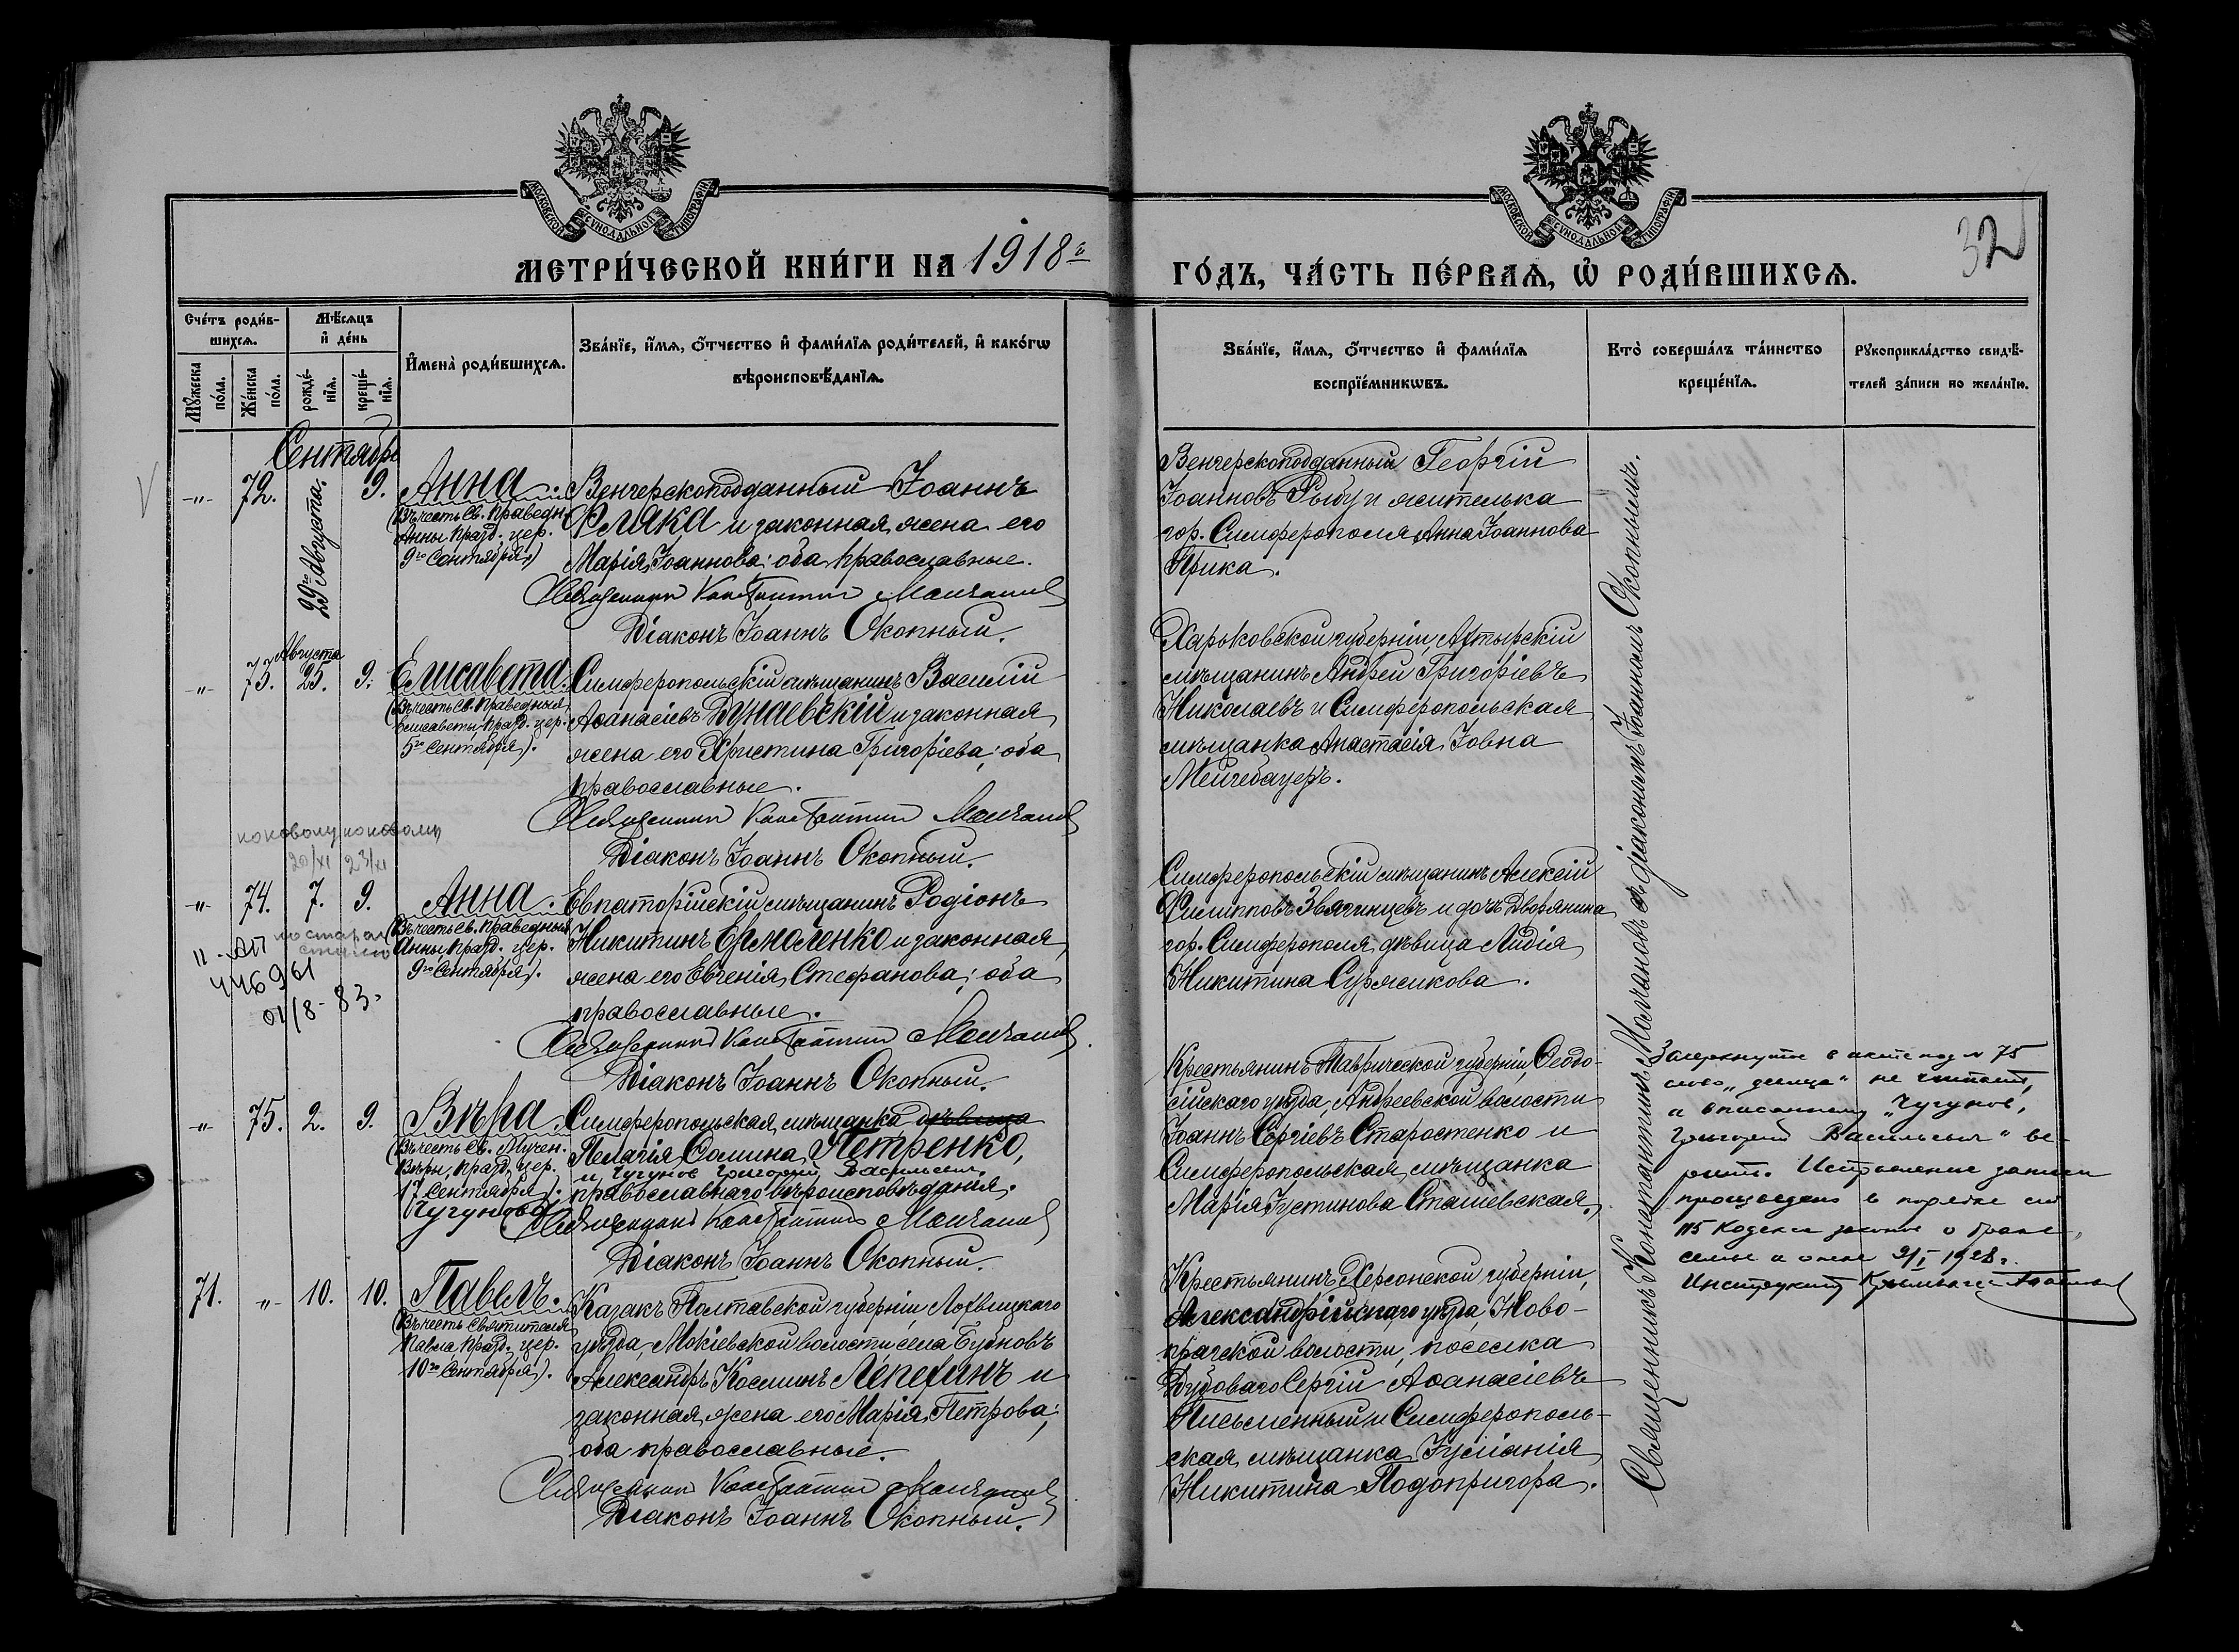 МОСКОВСКОЙ СѴНОДАЛЬНОЙ ТИПОГРАФІИ
МОСКОВСКОЙ СѴНОДАЛЬНОЙ ТИПОГРАФІИ
32
МЕТРИ́ЧЕСКОЙ КНИ́ГИ НА 1918 г.
ГО́ДЪ, ЧА́СТЬ ПЕ́РВАѦ, Ѡ РОДИ́ВШИХСѦ.
Сче́тъ роди́в-
шихсѧ.
Мꙋжеска
по́ла.
Же́нска
по́ла.
Мѣ́сѧцъ
и҆ де́нь
рожде́-
нїѧ.
креще́-
нїѧ.
И҆мена̀ роди́вшихсѧ.
Зва́нїе, и҆́мѧ, ѻ҆́тчество и҆ фами́лїѧ роди́телей, и҆ како́гѡ
вѣроисповѣ́данїѧ.
Зва́нїе, и҆́мѧ, ѻ҆́тчество и҆ фами́лїѧ
воспрїе́мникѡвъ.
Кто̀ соверша́лъ та́инство
креще́нїѧ.
Рꙋкоприкла́дство свидѣ́-
телей за́писи по жела́нїю.
Сентябрь
-"- 72. 29го Августа. 9. Анна
(Въ честь Св. Праведн.
Анны, празд. цер.
9го Сентября.)
Венгерскоподданный Іоаннъ
Фляка и законная жена его
Марія Іоаннова; оба православные.
Священникъ Константинъ Молчановъ
Діаконъ Іоаннъ Окопный.
Венгерскоподданный Георгій
Іоанновъ и жителька
гор. Симферополя Анна Іоаннова
Прика.
-"- 73. Августа 25. 9. Елисавета.
(Въ честь Св. Праведныя
Елисаветы, празд. цер.
5го Сентября).
Симферопольскій мѣщанинъ Василій
Аѳанасіевъ Дунаевскій и законная
жена его Христина Григоріева; оба
православные.
Священникъ Константинъ Молчановъ
Діаконъ Іоаннъ Окопный.
Харьковской губерніи, Ахтырскій
мѣщанинъ Андрей Григоріевъ
Николаевъ и Симферопольская
мѣщанка Анастасія Іовна
Мейчебауеръ.
по новому по новому
20/XI 23/XI
-"- 74. 7. 9. Анна.
по старому
стилю
II-АП
446961
01/8-83.
(Въ честь Св. Праведныя
Анны, празд. цер.
9го Сентября).
Евпаторійскій мѣщанинъ Родіонъ
Никитинъ Ермоленко и законная
жена его Евгенія Стефанова; оба
православные.
Священникъ Константинъ Молчановъ
Діаконъ Іоаннъ Окопный.
Симферопольскій мѣщанинъ Алексій
Филипповъ Звягинцевъ и дочь Дворянина
гор. Симферополя, дѣвица Лидія
Никитина Суржикова.
-"- 75. 2. 9. Вѣра.
(Въ честь Св. Мучен.
Вѣры, празд. цер.
17 Сентября).
Чугунова
Симферопольская мѣщанка дѣвица
Пелагія Ѳомина Петренко,
и Чугунов Григорий Васильевич,
православнаго вѣроисповѣданія.
Священникъ Константинъ Молчановъ
Діаконъ Іоаннъ Окопный.
Крестьянинъ Таврической губерніи, Ѳеодо-
сійскаго уѣзда, Андреевской волости
Іоаннъ Сергіевъ Старостенко и
Симферопольская мѣщанка
Марія Іустинова Сташевская.
Зачеркнутое в акте под № 75
слово „девица“ не читать,
а вписанному „Чугунов,
Григорий Васильевич“ ве-
рить. Исправление записи
произведено в порядке ст
115 Кодекса законов о браке,
семье и опеке 9/I 1928 г.
71. -"- 10. 10. Павелъ.
(Въ честь Святителя
Павла, празд. цер.
10го Сентября).
Казакъ Полтавской губерніи, Лохвицкаго
уѣзда, Мокіевской волости села Бубновъ
Александръ Косминъ Лепехинъ и
законная жена его Марія Петрова;
оба православные.
Священникъ Константинъ Молчановъ
Діаконъ Іоаннъ Окопный.
Крестьянинъ Херсонской губерніи,
Александрійскаго уѣзда, Ново-
прагской волости, поселка
Дубоваго Сергій Аѳанасіевъ
Письменный и Симферополь-
ская мѣщанка Іуліанія
Никитина Подопригора.
Священникъ Константинъ Молчановъ съ діакономъ Іоанномъ Окопнымъ.